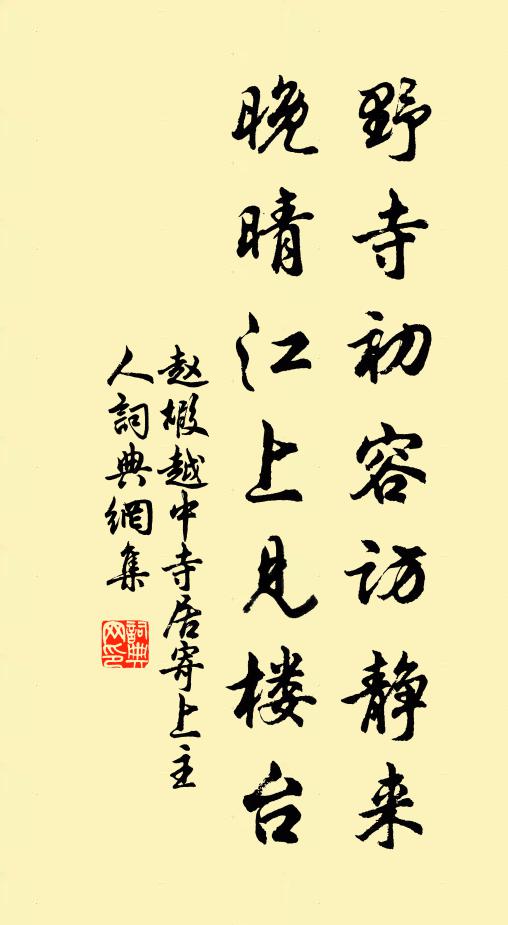 野寺初容访静来
晚晴江上见楼台
赵嘏越中寺居寄上主
人詞典網集
詞典
网印